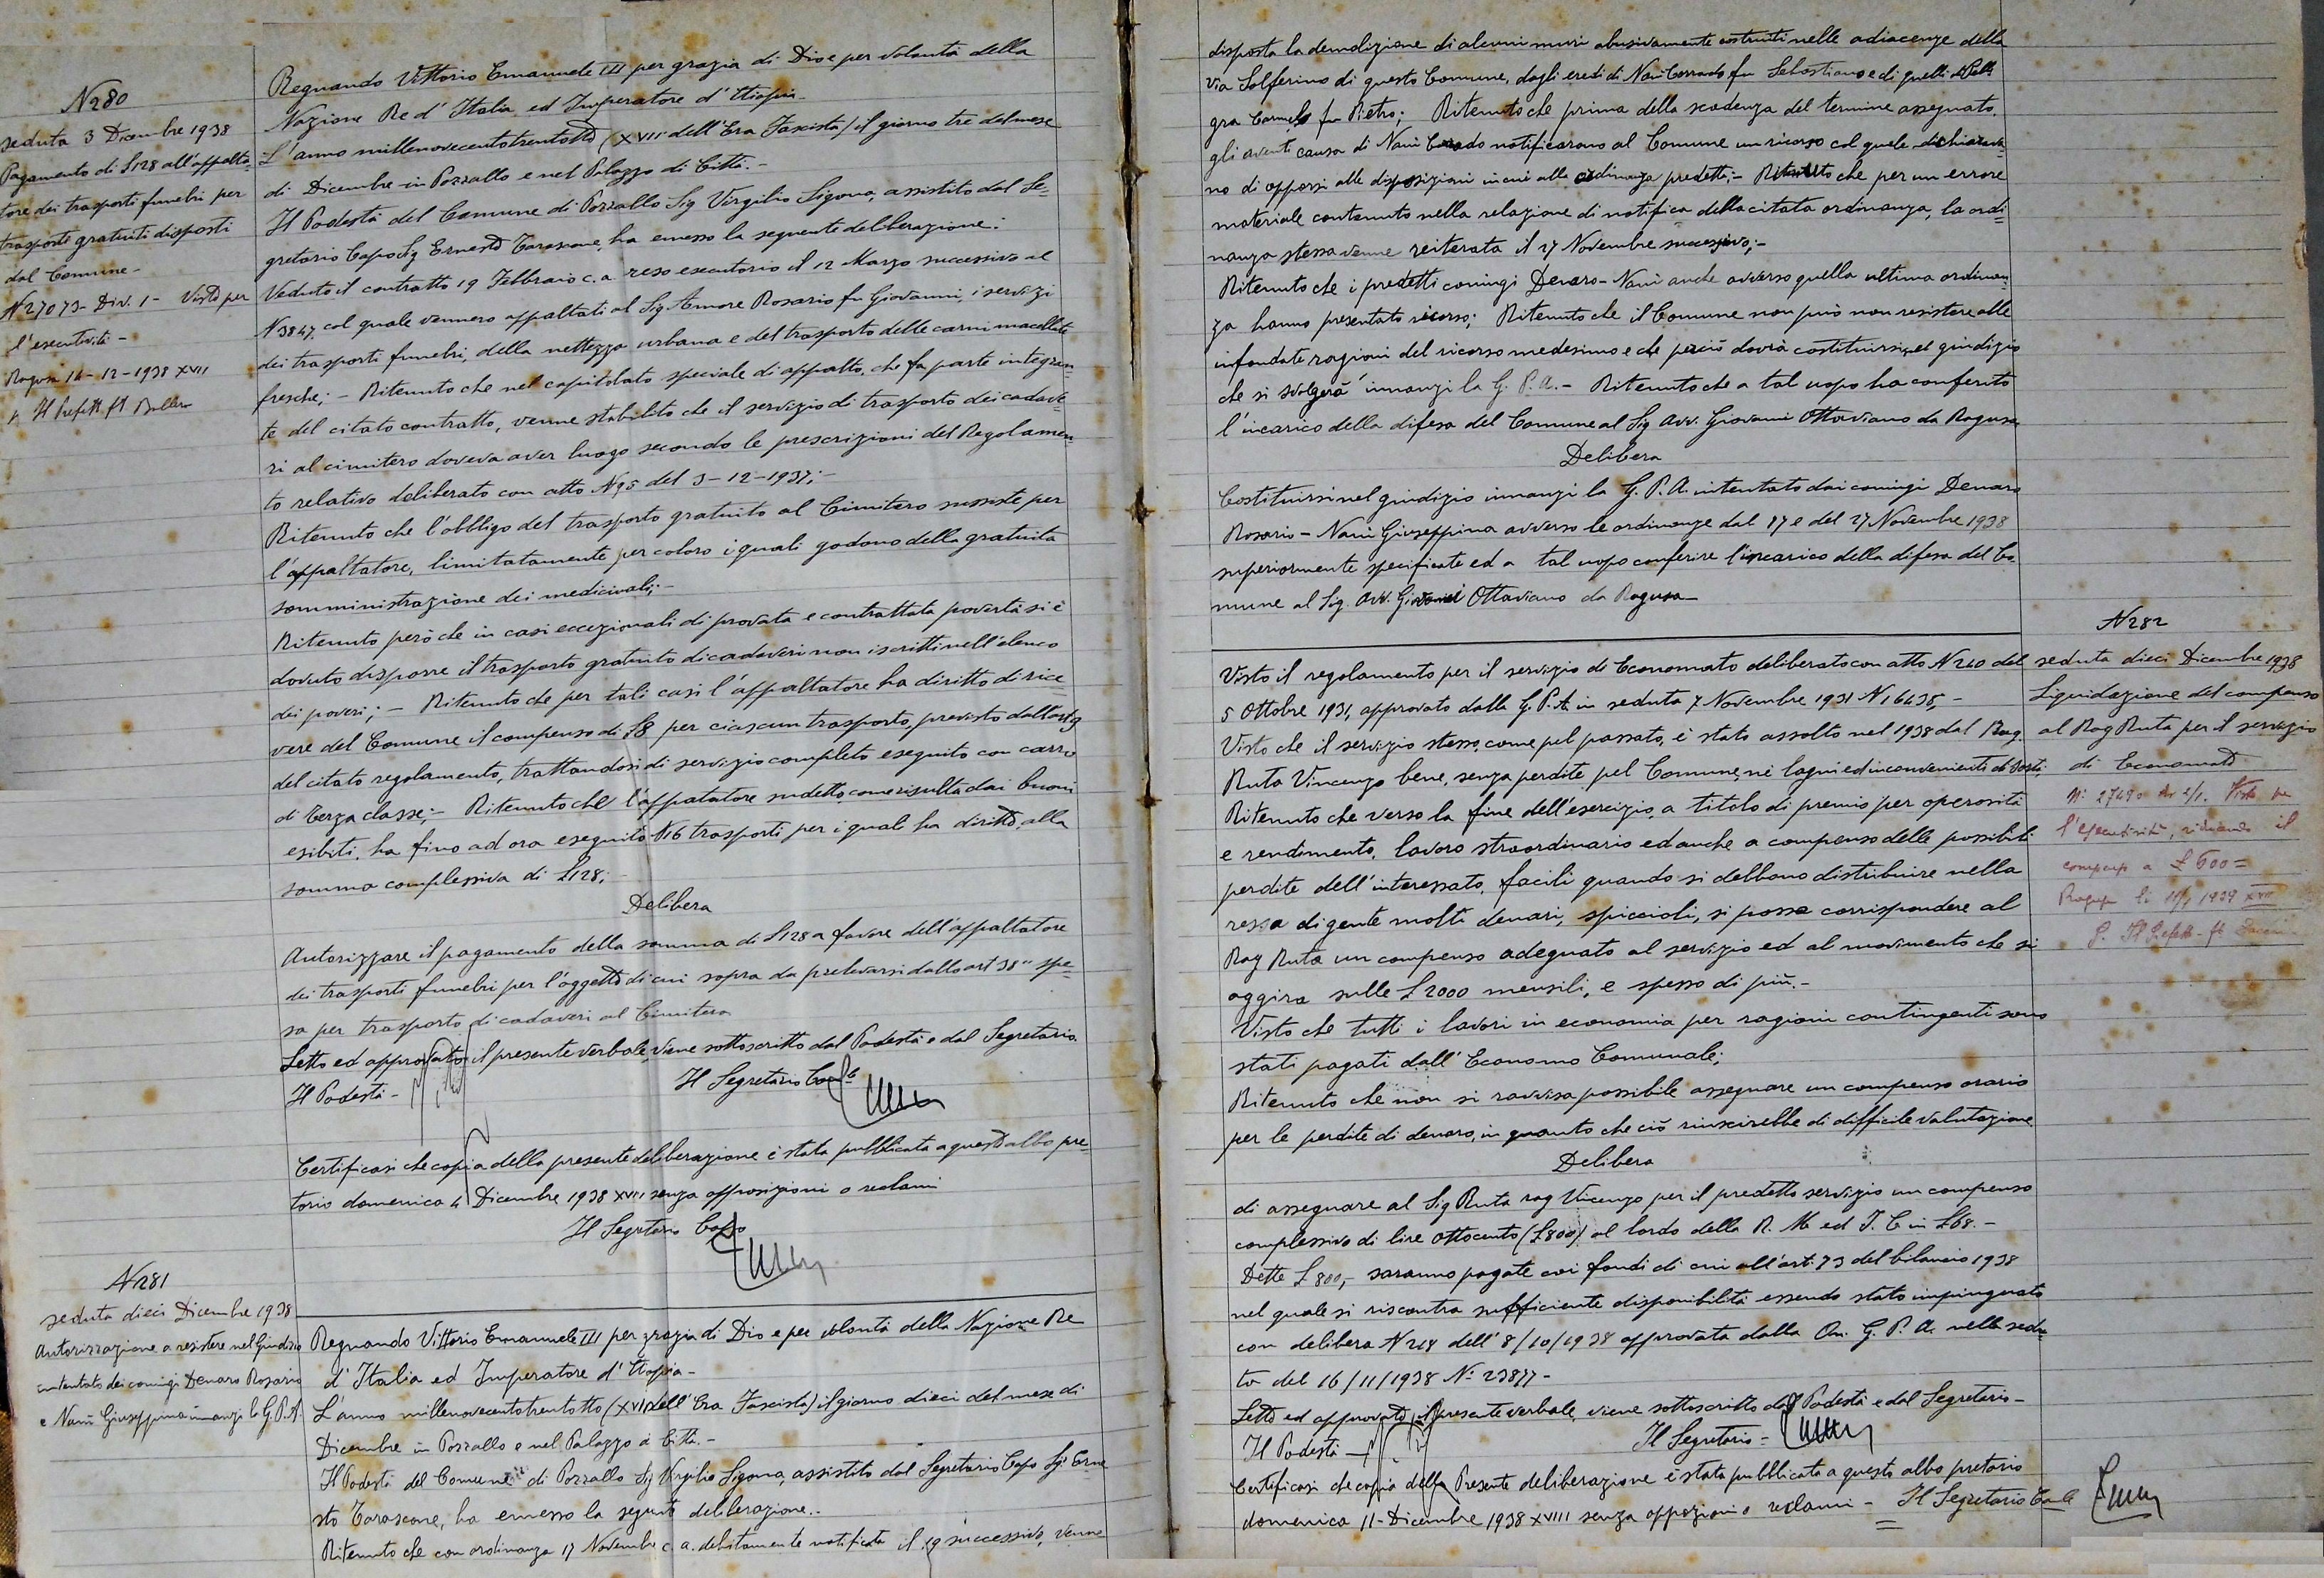 N 280
seduta 3 Dicembre 1938
Pagamento di £ 128 all'appalta-
tore dei trasporti funebri per
trasporti gratuiti disposti
dal Comune -
N 27073 - Div. 1 - Visto per
l'esecutività -
Ragusa 14-12-1938 XVII
p. Il Prefetto ft
Regnando Vittorio Emanuele III per grazia di Dio e per volontà della
Nazione Re d'Italia ed Imperatore d'Etiopia -
L'anno millenovecentotrentotto (XVII dell'Era Fascista) il giorno tre del mese
di Dicembre in Pozzallo e nel Palazzo di Città. -
Il Podestà del Comune di Pozzallo Sig Virgilio Sigona, assistito dal Se-
gretario Capo Sig Ernesto Tarascone, ha emesso la seguente deliberazione:
Veduto il contratto 19 Febbraio c.a. reso esecutorio il 12 Marzo successivo al
N 3847, col quale vennero appaltati al Sig. Amore Rosario fu Giovanni, i servizi
dei trasporti funebri, della nettezza urbana e del trasporto delle carni macellate
fresche; - Ritenuto che nel capitolato speciale di appalto, che fa parte integran-
te del citato contratto, venne stabilito che il servizio di trasporto dei cadave-
ri al cimitero doveva aver luogo secondo le prescrizioni del Regolamen-
to relativo deliberato con atto N 95 del 3-12-1937; -
Ritenuto che l'obbligo del trasporto gratuito al Cimitero sussiste per
l'appaltatore, limitatamente per coloro i quali godono della gratuita
somministrazione dei medicinali; -
Ritenuto però che in casi eccezionali di provata e contrattata povertà si è
dovuto disporre il trasporto gratuito di cadaveri non iscritti nell'elenco
dei poveri; - Ritenuto che per tali casi l'appaltatore ha diritto di rice
vere del Comune il compenso di £8 per ciascun trasporto, previsto dall'art 9
del citato regolamento, trattandosi di servizio completo eseguito con carro
di terza classe; - Ritenuto che l'appatatore sudetto, come risulta dai buoni
esibiti, ha fino ad ora eseguito N 16 trasporti per i quali ha diritto alla
somma complessiva di £128; -
Delibera
Autorizzare il pagamento della somma di £128 a favore dell'appaltatore
dei trasporti funebri per l'oggetto di cui sopra da prelevarsi dallo art 38 "spe-
sa per trasporto di cadaveri al Cimitero
Letto ed approvato il presente verbale, viene sottoscritto dal Podestà e dal Segretario.
Il Podestà - Il Segretario Com.le
Certificasi che copia della presente deliberazione è stata pubblicata a questo albo pre-
torio domenica 4 Dicembre 1938 XVII senza opposizioni o reclami
Il Segretario Capo
N 281
seduta dieci Dicembre 1938
Autorizzazione a resistere nel Giudizio
intentato dei coniugi Denaro Rosario
e Nanì Giuseppina innanzi la G.P.A.
Regnando Vittorio Emanuele III per grazia di Dio e per volontà della Nazione Re
d'Italia ed Imperatore d'Etiopia -
L'anno millenovecentotrentotto (XVII dell'Era Fascista) il giorno dieci del mese di
Dicembre in Pozzallo e nel Palazzo di Città. -
Il Podestà del Comune di Pozzallo Sig Virgilio Sigona, assistito dal Segretario Capo Sig Erne
sto Tarascone, ha emesso la seguente deliberazione..
Ritenuto che con ordinanza 17 Novembre c.a. debitamente notificata il 19 successivo, venne
disposta la demolizione di alcuni muri abusivamente costruiti nelle adiacenze della
via Solferino di questo Comune, dagli eredi di Nanì Corrado fu Sebastiano e di quelli di Pelle
gra Carmelo fu Pietro; Ritenuto che prima della scadenza del termine assegnato,
gli aventi causa di Nanì Corrado notificarono al Comune un ricorso col quale dichiarava-
no di opporsi alle disposizioni in cui alla ordinanza predetta; - Ritenuto che per un errore
materiale contenuto nella relazione di notifica della citata ordinanza, la ordi
nanza stessa venne reiterata il 27 Novembre successivo; -
Ritenuto che i predetti coniugi Denaro-Nanì anche avverso quella ultima ordinan-
za hanno presentato ricorso; Ritenuto che il Comune non può non resistere alle
infondate ragioni del ricorso medesimo e che perciò dovrà costituirsi nel giudizio
che si svolgerà innanzi la G.P.A. - Ritenuto che a tal uopo ha conferito
l'incarico della difesa del Comune al Sig Avv. Giovanni Ottaviano da Ragusa
Delibera
Costituirsi nel giudizio innanzi la G.P.A. intentato dai coniugi Denaro
Rosario - Nanì Giuseppina avverso le ordinanze dal 17 e del 27 Novembre 1938
superiormente specificate ed a tal uopo conferire l'incarico della difesa del Co-
mune al Sig. Avv. Giovanni Ottaviano da Ragusa
N 282
seduta dieci Dicembre 1938
Liquidazione del compenso
al Rag Ruta per il servizio
di Economato
N: 27490 Div 2/1. Visto per
l'esecutività, riducendo il
compenso a £ 600=
Ragusa li 1939 XVII
p. Il Prefetto - ft
Visto il regolamento per il servizio di Economato deliberato con atto N 240 del
5 Ottobre 1931, approvato dalla G.P.A. in seduta 7 Novembre 1931 N 16438, -
Visto che il servizio stesso, come pel passato, è stato assolto nel 1938 dal Rag.
Ruta Vincenzo bene, senza perdite pel Comune, nè lagni ed inconvenienti di sorta;
Ritenuto che verso la fine dell'esercizio, a titolo di premio per operosità
e rendimento, lavoro straordinario ed anche a compenso delle possibili
perdite dell'interessato, facili quando si debbono distribuire nella
ressa di gente molti denari, spiccioli, si possa corrispondere al
Rag Ruta un compenso adeguato al servizio ed al movimento che si
aggira sulle £ 2000 mensili, e spesso di più. -
Visto che tutti i lavori in economia per ragioni contingenti sono
stati pagati dall'Economo Comunale;
Ritenuto che non si ravvisa possibile assegnare un compenso orario
per le perdite di denaro, in quanto che ciò riuscirebbe di difficile valutazione
Delibera
di assegnare al Sig Ruta rag Vincenzo per il predetto servizio un compenso
complessivo di lire ottocento (£800) al lordo della R. M. ed I. C in £68. -
Dette £ 800, - saranno pagate coi fondi di cui all'art. 73 del bilancio 1938
nel quale si riscontra sufficiente disponibilità essendo stato impinguato
con delibera N 218 dell'8/10/1938 approvata dalla On. G. P. A. nella sedu
ta del 16/11/1938 N: 23877 -
Letto ed approvato, il presente verbale, viene sottoscritto dal Podestà e dal Segretario -
Il Podestà - Il Segretario -
Certificasi che copia della Presente deliberazione è stata pubblicata a questo albo pretorio
domenica 11-Dicembre 1938 XVIII senza opposizioni o reclami - Il Segretario Com.le